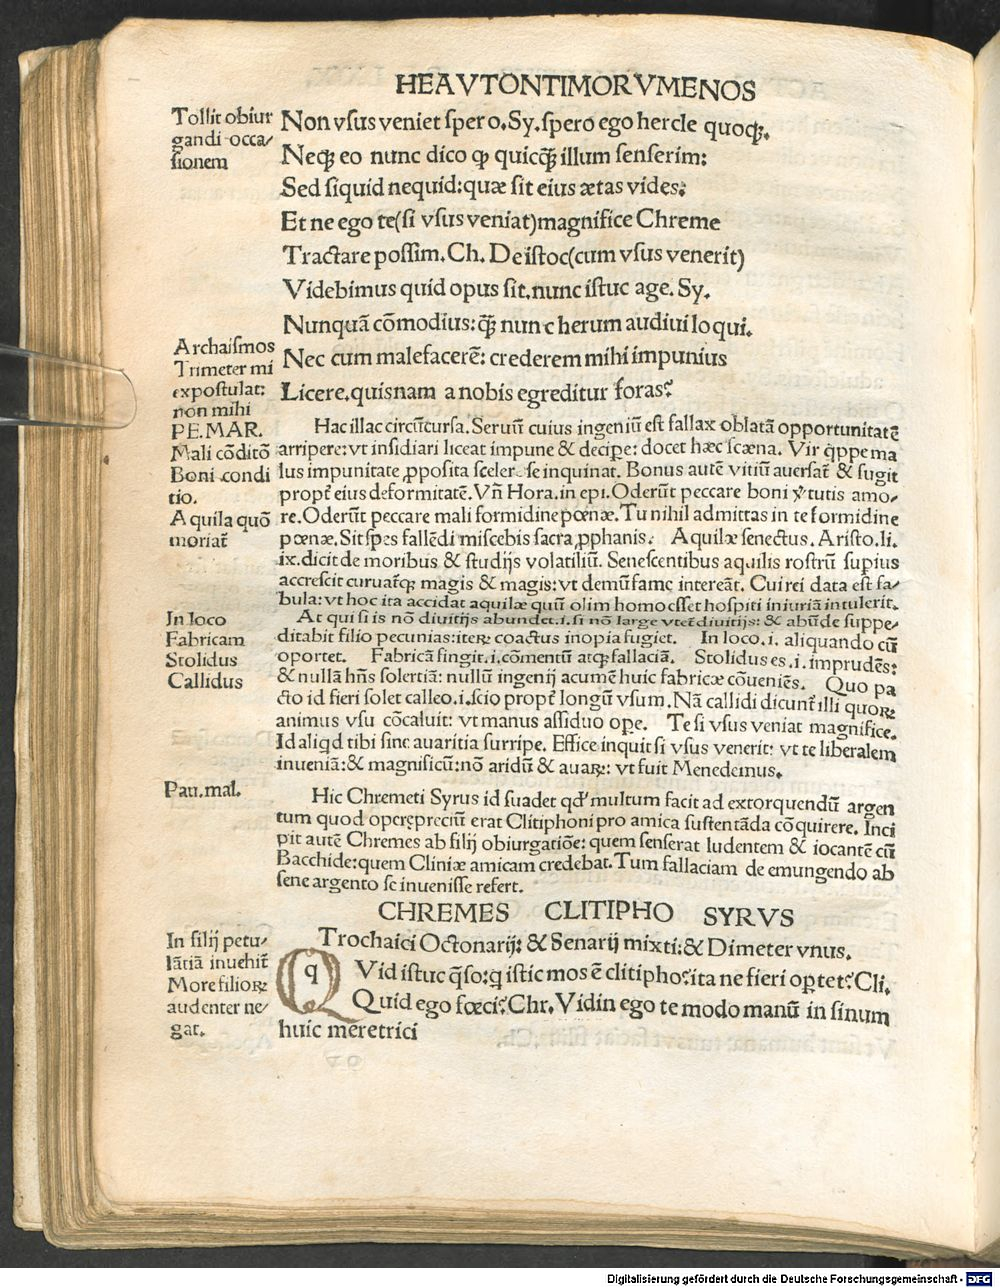 HEAVTONTIMORVMENOS
Tollit obiur
gandi occa/
sionem
Non vsus veniet spero. Sy. spero ego hercle quoqꝫ.
Neqꝫ eo nunc dico ꝙ quicꝗ̃ illum senserim:
Sed siquid nequid: quæ sit eius ætas vides:
Et ne ego te(si vsus veniat)magnifice Chreme
Tractare possim. Ch. De istoc(cum vsus venerit)
Videbimus quid opus sit. nunc istuc age. Sy.
Nunquã cõmodius: ꝗ̃ nunc herum audiui loqui.
Nec cum malefacerē: crederem mihi impunius
Licere. quisnam a nobis egreditur foras?
Archaismos
Trimeter mi
expostulat:
non mihi
PE. MAR.
Mali cõditõ
Boni condi
tio.
Aquila quõ
moriat̃
Hac illac circũcursa. Seruũ cuius ingeniũ est fallax oblatã opportunitatē
arripere: vt insidiari liceat impune & decipe: docet hæc scæna. Vir q̈ppe ma
lus impunitate ꝓposita scelere se inquinat. Bonus autē vitiũ auersat̃ & fugit
propt̃ eius deformitatē. Vñ Hora. in epi. Oderũt peccare boni v̓tutis amo/
re. Oderũt peccare mali formidine pœnæ. Tu nihil admittas in te formidine
pœnæ. Sit spes fallēdi miscebis sacra ꝓphanis. Aquilæ senectus. Aristo. li.
ix. dicit de moribus & studijs volatiliũ. Senescentibus aquilis rostrũ supius
accrescit curuat̃qꝫ magis & magis: vt demũ fame intereãt. Cui rei data est fa/
bula: vt hoc ita accidat aquilæ quũ olim homo esset hospiti iniuriã intulerit.
In loco
Fabricam
Stolidus
Callidus
At qui si is nõ diuitijs abundet. i. si nõ large vtet̃ diuitijs: & abũde suppe/
ditabit filio pecunias: iteꝝ coactus inopia fugiet. In loco. i. aliquando cũ
oportet. Fabricã fingit. i. cõmentũ atqꝫ fallaciã. Stolidus es. i. imprudēs:
& nullã hñs solertiã: nullũ ingenij acumē huic fabricæ cõueniēs. Quo pa
cto id fieri solet calleo. i. scio propt̃ longũ vsum. Nã callidi dicunt̃ illi quoꝝ
animus vsu cõcaluit: vt manus assiduo ope. Te si vsus veniat magnifice.
Id aliqd tibi sine auaritia surripe. Effice inquit si vsus venerit: vt te liberalem
inueniã: & magnificũ: nõ aridũ & auaꝝ: vt fuit Menedemus.
Pau. mal.
Hic Chremeti Syrus id suadet qd' multum facit ad extorquendũ argen
tum quod operepreciũ erat Clitiphoni pro amica sustentãda cõquirere. Inci
pit autē Chremes ab filij obiurgatiõe: quem senserat ludentem & iocantē cũ
Bacchide: quem Cliniæ amicam credebat. Tum fallaciam de emungendo ab
sene argento se inuenisse refert.
CHREMES CLITIPHO SYRVS
Trochaici Octonarij: & Senarij mixti: & Dimeter vnus.
In filij petu/
lãtiã inuehit̃
More filioꝝ
audenter ne/
gat.
q
Vid istuc q̃so: q̣ istic mos ē clitipho? ita ne fieri oꝑtet? Cli.
Quid ego fœci? Chr. Vidin ego te modo manũ in sinum
huic meretrici
Digitalisierung gefördert durch die Deutsche Forschungsgemeinschaft - DFG